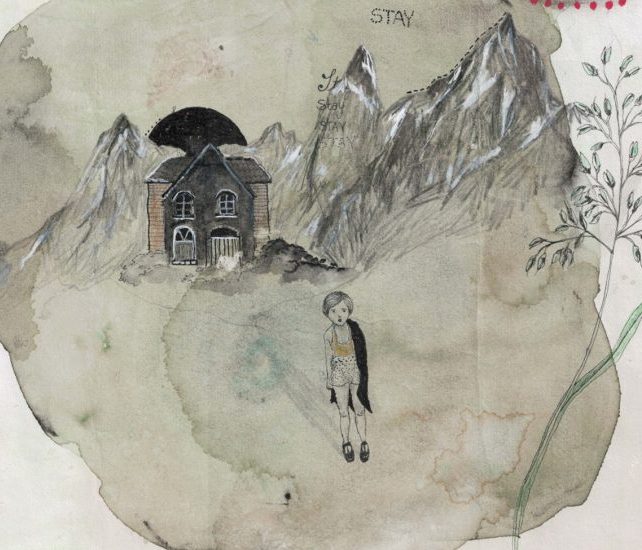 STAY
St
Stay
STAY
STAY